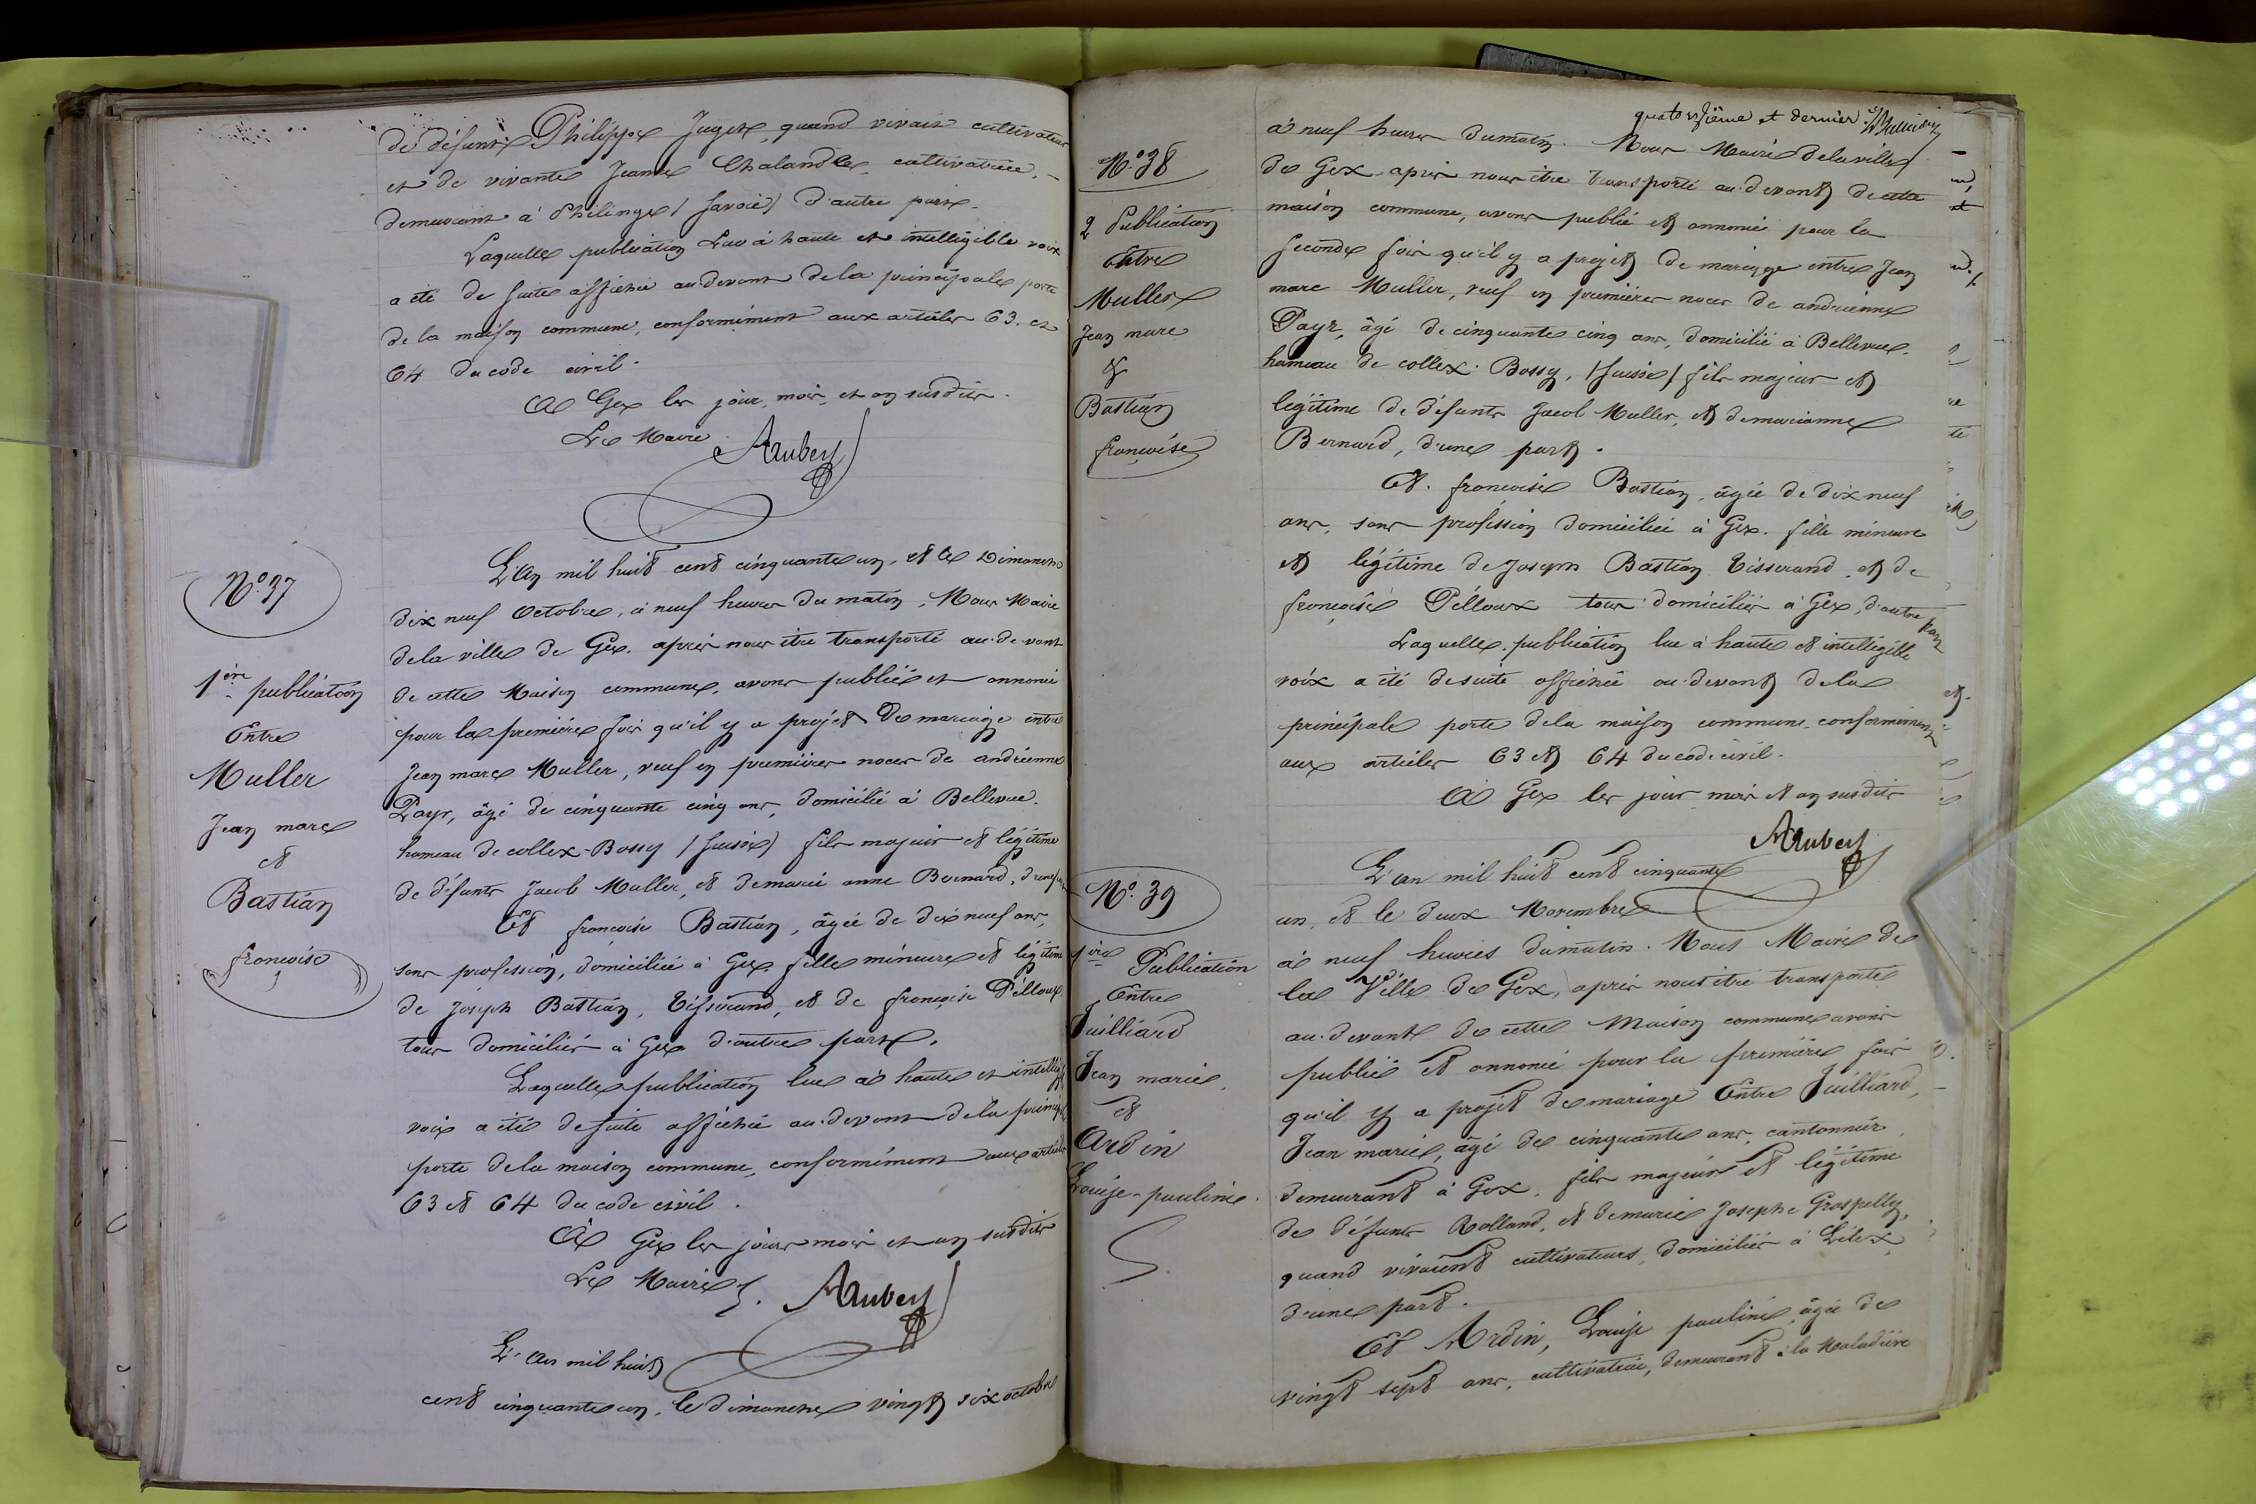 de défunt Philippe Juget, quand vivait cultivateur
et de vivante Jeanne Chalande, cultivatrice,
demeurant à Philinges (Savoie) d'autre part.
Laquelle publication Lue à haute et intelligible voix
a été de suite affichée au devant de la principale porte
de la maison commune, conformément aux articles 63. et
64 du code civil.
A Gex les jour, mois, et an susdits.
Le Maire
Aubery
N° 37
1ère publication
Entre
Muller
Jean marc
et
Bastian
françoise
L'an mil huit cent cinquante un, et le Dimanche
dix neuf Octobre, à neuf heures du matin, Nous Maire
de la ville de Gex, après nous être transporté au-devant
de cette Maison commune, avons publié et annoncé
pour la première fois qu'il y a projet de mariage entre
Jean marc Muller, veuf en premières noces de andrienne
Payr, âgé de cinquante cinq ans, domicilié à Bellevue,
hameau de collex-Bossy (Suisse) fils majeur et légitime
de défunts Jacob Muller, et de marie anne Bernard, d'une part
Et françoise Bastian, âgée de dix neuf ans,
sans profession, domiciliée à Gex, fille mineure et légitime
de Joseph Bastian, Tisserand, et de françoise Pélloux
tous domiciliés à Gex d'autre part.
Laquelle publication lue à haute et intelligible
voix a été de suite affichée au-devant de la principale
porte de la maison commune, conformément aux articles
63 et 64 du code civil.
A Gex les jour mois et an susdits
Le Maire
Aubery
L'an mil huit
cent cinquante un, le dimanche vingt six octobre
quatorzième et dernier
N° 38
2 Publication
Entre
Muller
Jean marc
&
Bastian
françoise
à neuf heures du matin. Nous Maire de la ville
de Gex, après nous être transporté au-devant de cette
maison commune, avons publié et annoncé pour la
seconde fois qu'il y a projet de mariage entre Jean
marc Muller, veuf en premières noces de andrienne
Payr, âgé de cinquante cinq ans, domicilié à Bellevue,
hameau de collex-Bossy, (Suisse) fils majeur et
légitime de défunts Jacob Muller, et de marianne
Bernard, d'une part.
Et françoise Bastian, âgée de dix neuf
ans, sans profession domiciliée à Gex. fille mineure
et légitime de Joseph Bastian Tisserand, et de
françoise Pélloux tous domiciliés à Gex, d'autre part
Laquelle publication lue à haute et intelligible
voix a été de suite affichée au-devant de la
principale porte de la maison commune conformément
aux articles 63 et 64 du code civil.
A Gex les jour mois et an susdits
Aubery
N° 39
1ère Publication
Entre
Juilliard
Jean marie
et
Ardin
Louise-pauline
L'an mil huit cent cinquante
un, et le deux Novembre
à neuf heures du matin. Nous Maire de
la Ville de Gex, après nous être transporté
au-devant de cette Maison commune avons
publié et annoncé pour la première fois
qu'il y a projet de mariage Entre Juilliard,
Jean marie, âgé de cinquante ans, cantonnier
demeurant à Gex, fils majeur et légitime
de défunts Rolland, et de marie Josephe Grospellier,
quand vivaient cultivateurs, domiciliés à Lélex,
d'une part.
Et Ardin, Louise pauline, âgée de
vingt sept ans, cultivatrice, demeurant à la Maladière